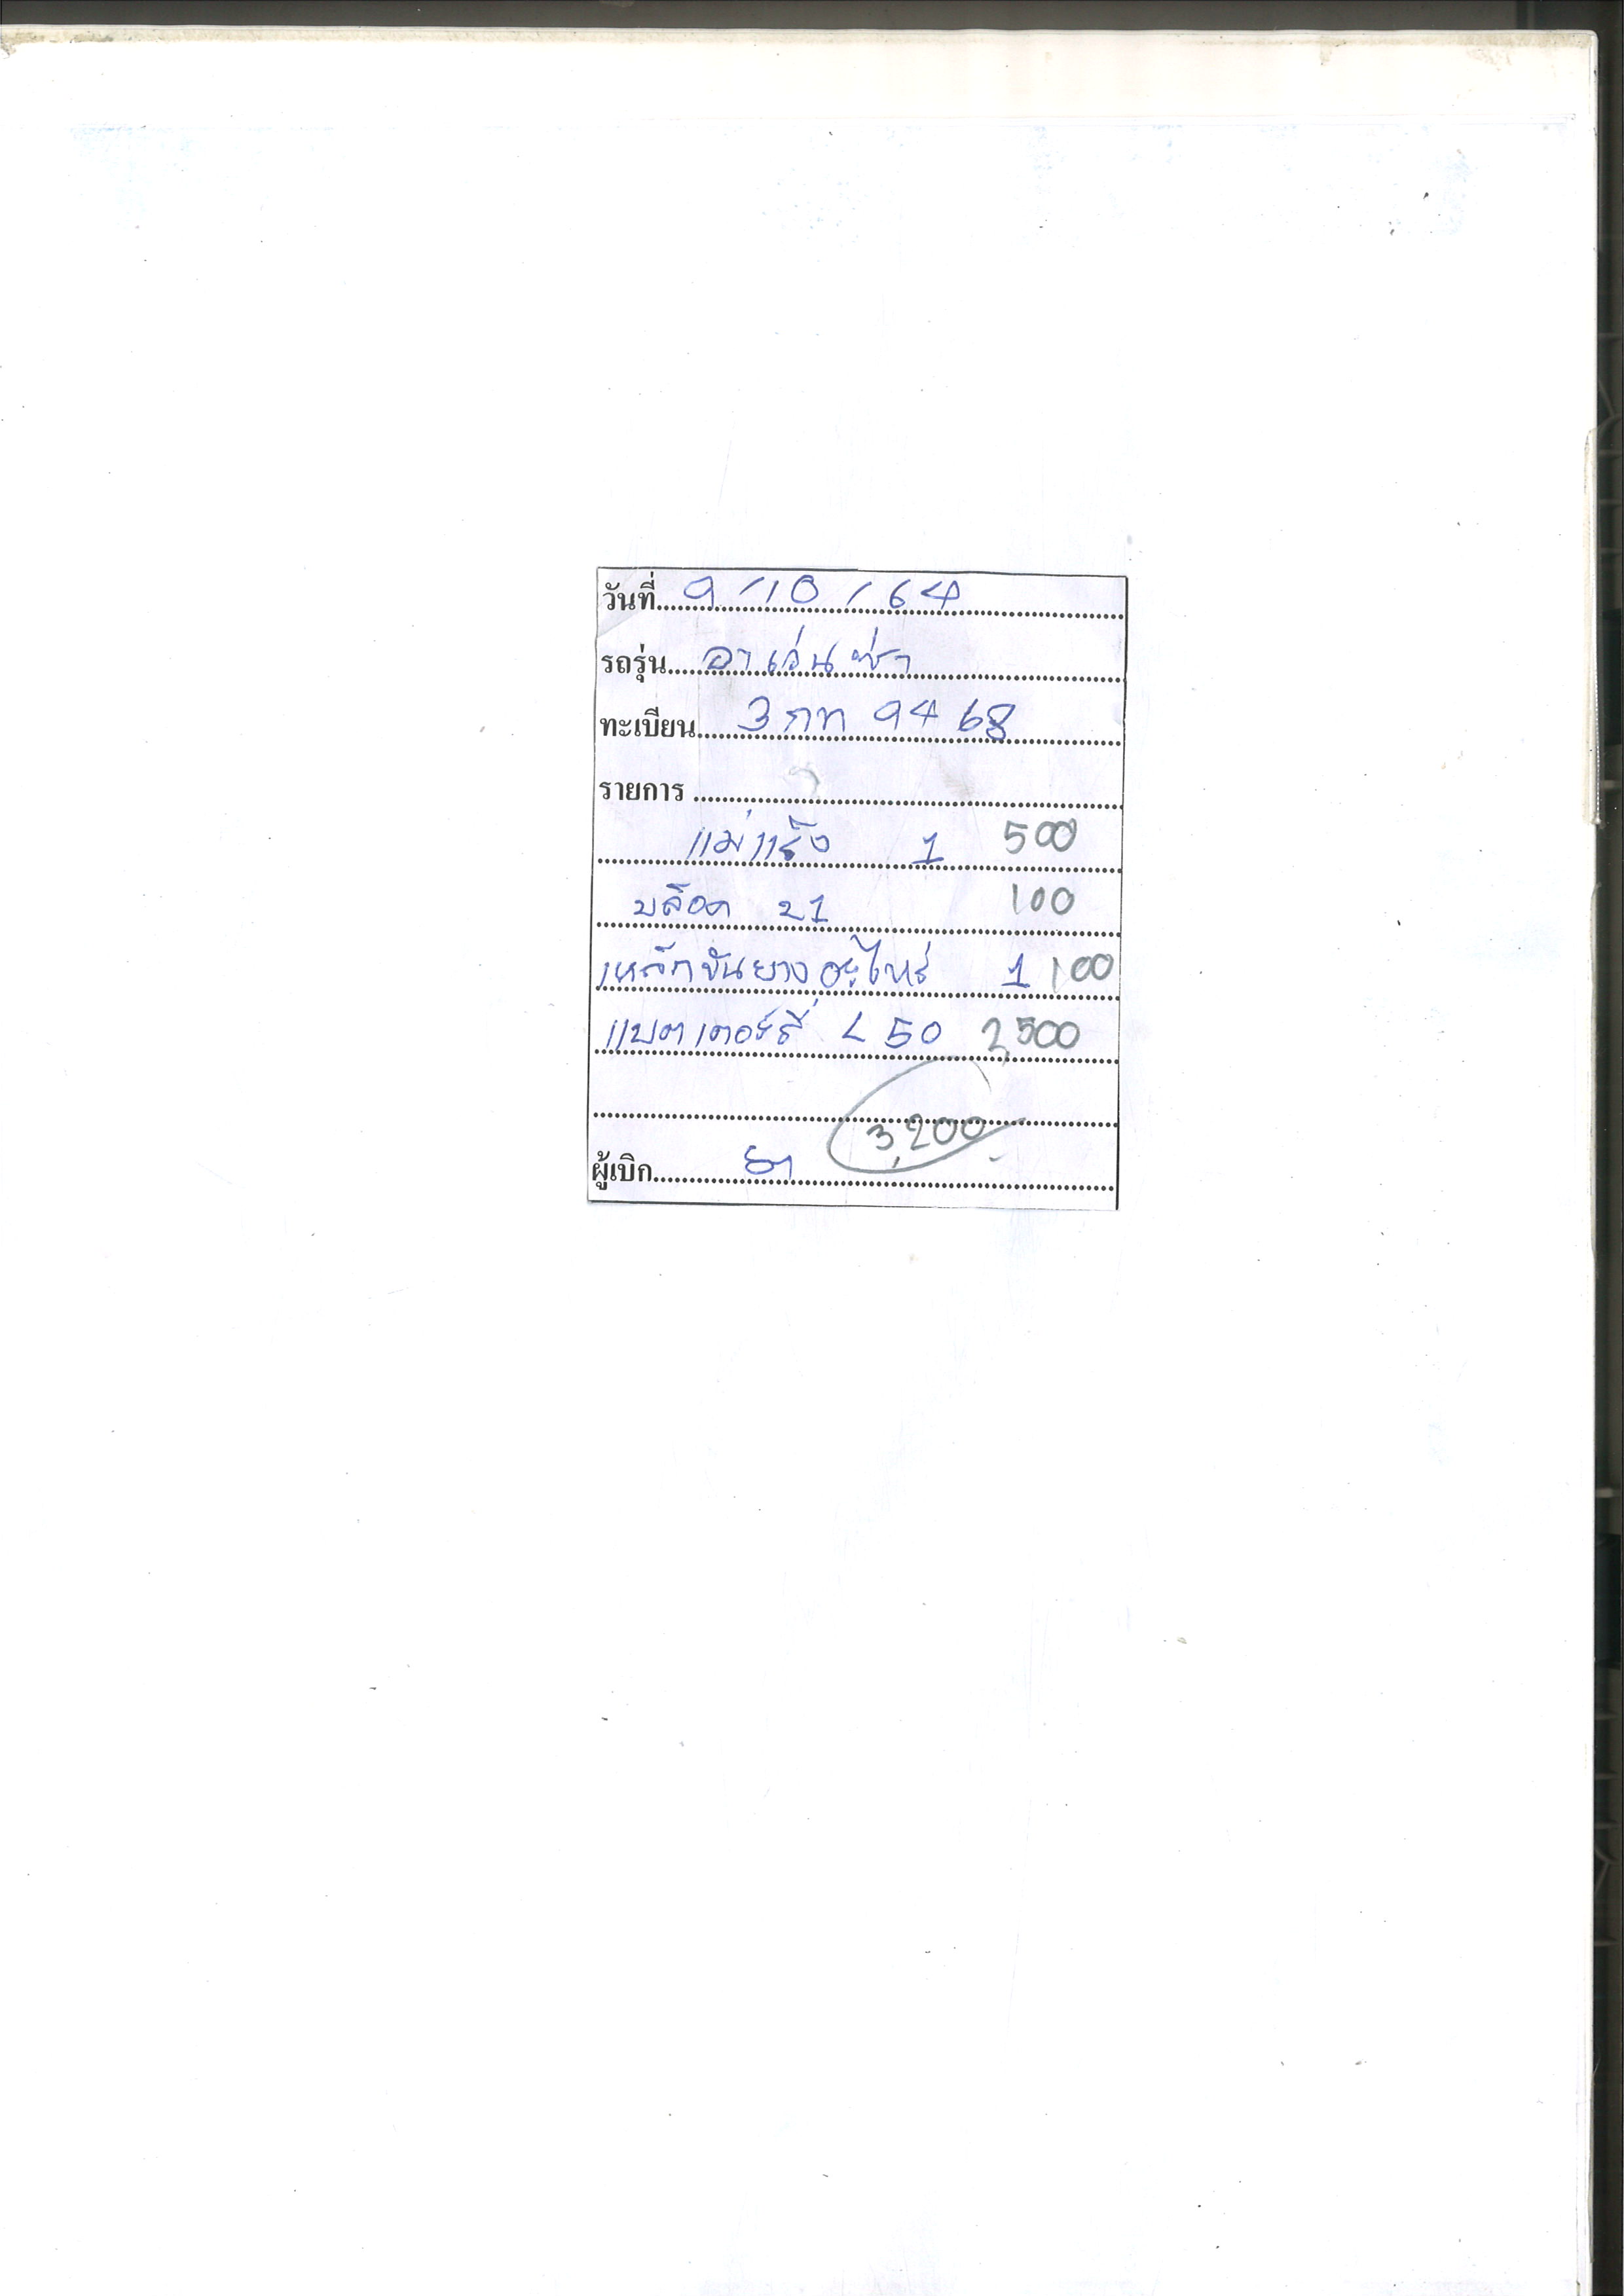 วันที่ 9/10/64
รถรุ่น อาเว่นซ่า
ทะเบียน 3กท 9468
รายการ
แม่แร็ง 1 500
บล็อค 21 100
เหล็กขันยางอะไหร่ 1 100
แบตเตอร์รี่ L 50 2,500
3,200
ผู้เบิก